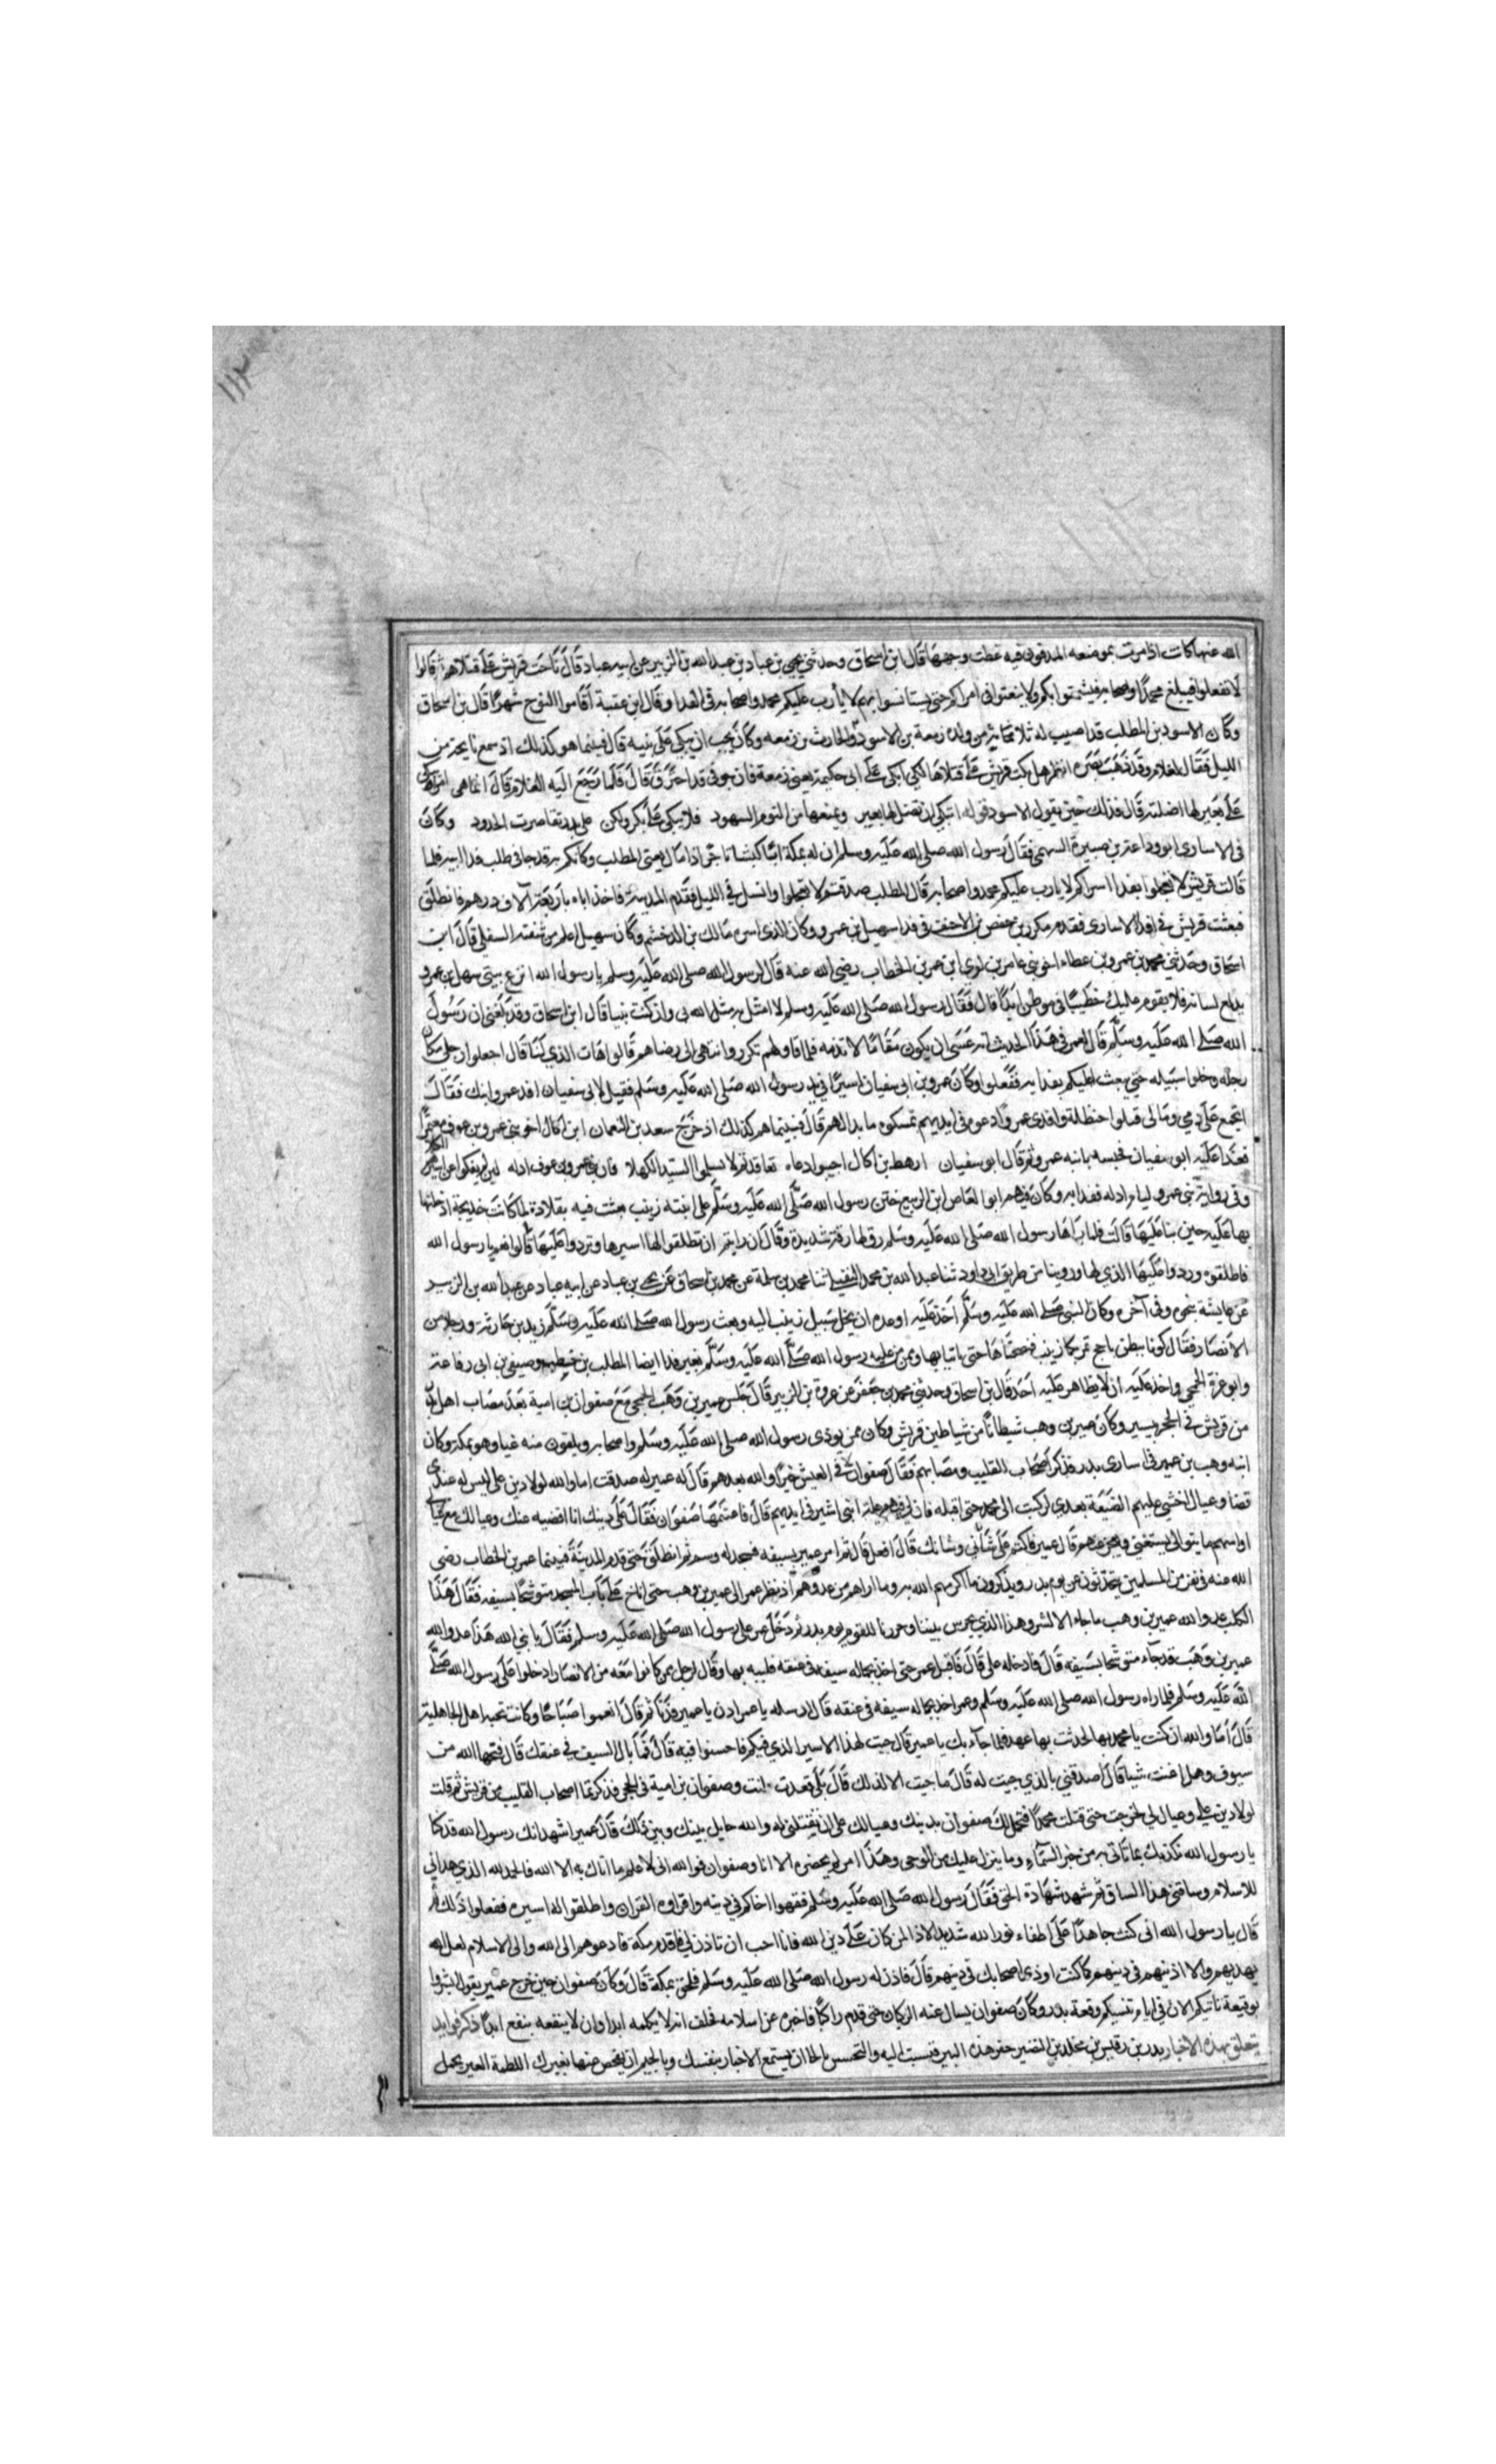 ١١٢
الله عنها كانت اذا مرت بموضعه المدفون فيه غطت وجهها قال ابن اسحاق وحدثني يحيى بن عباد بن عبد الله بن الزبير عن ابيه عباد قال ناحت قريش على قتلاهم ثم قالوا
لا تفعلوا فيبلغ محمدا واصحابه فيشمتوا بكم ولا تبعثوا في اسراكم حتى تستانسوا بهم لا يأرب عليكم محمد واصحابه في الفداء وقال ابن عقبة أقاموا النوح شهرا قال بن اسحاق
وكان الاسود بن المطلب قد اصيب له ثلاثة من ولده زمعة بن الاسود والحارث بن زمعه وكان يحب ان يبكي على بنيه قال فبينما هو كذلك اذ سمع نايحة من
الليل فقال لغلامه وقد ذهب بصره انظر هل بكت قريش على قتلاها لعلي ابكي على ابي حكيمة يعني زمعة فان جوفي قد احترق قال فلما رجع اليه الغلام قال انما هي امراة تبكي
على بعير لها اضلته قال فذلك حين يقول الاسود قوله اتبكي ان يضل لها بعير ويمنعها من النوم السهود فلا تبكي على بكر ولكن على بدر تقاصرت الجدود وكان
في الاسارى ابو وداعة بن صبيرة السهمي فقال رسول الله صلى الله عليه وسلم ان له بمكة ابنا كيسا تاجرا ذا مال يعني المطلب وكانكم به قد جا في طلب فدا ابيه فلما
قالت قريش لا تعجلوا بفدا اسراكم لا يارب عليكم محمد واصحابه قال المطلب صدقتم لا تعجلوا وانسل في الليل فقدم المدينة فاخذ اباه باربعة آلاف درهم فانطلق
فبعثت قريش في فداء الاسارى فقدم مكرز بن حفص بن الاخيف في فدا سهيل بن عمرو وكان الذي اسره مالك بن الدخشم وكان سهيل اعلم من شفته السفلى قال ابن
اسحاق وحدثني محمد بن عمرو بن عطاء اخو بني عامر بن لوي ان عمر بن الخطاب رضي الله عنه قال لرسول الله صلى الله عليه وسلم يا رسول الله انزع ثنيتي سهيل بن عمرو
يدلع لسانه فلا يقوم عليك خطيبا في موطن ابدا قال فقال رسول الله صلى الله عليه وسلم لا امثل به فيمثل الله بي وان كنت نبيا قال ابن اسحاق وقد بلغني ان رسول
الله صلى الله عليه وسلم قال لعمر في هذا الحديث انه عسى ان يكون مقاما لا تذمه فلما قاولهم مكرز وانتهى الى رضاهم قالوا هات الذي لنا قال اجعلوا رجلي مكان
رجله وخلوا سبيله حتى يبعث اليكم بفدايه ففعلوا وكان عمرو بن ابي سفيان اسيرا في يد رسول الله صلى الله عليه وسلم فقيل لابي سفيان افد عمروا ابنك فقال
ايجمع علي دمي ومالي قتلوا حنظلة وافدي عمروا دعوه في ايديهم يمسكوه ما بدا لهم قال فبينما هم كذلك اذ خرج سعد بن النعمان ابن اكال اخو بني عمرو بن عوف معتمرا
فعدا عليه ابو سفيان فحبسه بابنه عمرو ثم قال ابو سفيان ارهط بن اكال اجيبوا دعاه تعاقدتم لا تسلموا السيد الكهلا فان بني عمرو بن عوف اذلة لين لم يفكوا عن اسيرهم الكبلا
وفي رواية بني عمرو لياما اذله ففدا به وكان فيهم ابو العاص ابن الربيع ختن رسول الله صلى الله عليه وسلم على ابنته زينب بعثت فيه بقلادة لها كانت خديجة ادخلتها
بها عليه حين بنا عليها قالت فلما راها رسول الله صلى الله عليه وسلم رق لها رقة شديدة وقال ان رايتم ان تطلقوا لها اسيرها وتردوا عليها قالوا نعم يا رسول الله
فاطلقوه وردوا عليها الذي لها وروينا من طريق ابي داود ثنا عبد الله بن محمد النفيلي ثنا محمد بن سلمة عن محمد بن اسحاق عن يحيى بن عباد عن ابيه عباد عن عبد الله بن الزبير
عن عايشة بنحوه وفي آخره وكان النبي صلى الله عليه وسلم أخذ عليه او وعده ان يخلي سبيل زينب اليه وبعث رسول الله صلى الله عليه وسلم زيد بن حارثة ورجلا من
الانصار فقال كونا ببطن ياجج تمر بكما زينب فتصحباها حتى تاتيا بها وممن من عليه رسول الله صلى الله عليه وسلم بغير فدا ايضا المطلب بن حنطب وصيفي بن ابي رفاعة
وابو عزة الجمحي واخذ عليه ان لا يظاهر عليه احد قال بن اسحاق وحدثني محمد بن جعفر عن عروة بن الزبير قال جلس عمير بن وهب الجمحي مع صفوان بن امية بعد مصاب اهل بدر
من قريش في الحجر بيسير وكان عمير بن وهب شيطانا من شياطين قريش وكان ممن يوذي رسول الله صلى الله عليه وسلم واصحابه ويلقون منه عنا وهو بمكة وكان
ابنه وهب بن عمير في اسارى بدر فذكر اصحاب القليب ومصابهم فقال صفوان ما في العيش خير والله بعدهم قال له عمير له صدقت اما والله لولا دين علي ليس له عندي
قضا وعيال اخشى عليهم الضيعة بعدي لركبت الى محمد حتى اقتله فان لي فيهم علة ابني اسير في ايديهم قال فاغتنمها صفوان فقال علي دينك انا اقضيه عنك وعيالك مع عيالي
اواسيهم ما بقوا لا يسعني شي ويعجز عنهم قال عمير فاكتم علي شأني وشانك قال افعل قال ثم امر عمير بسيفه فشحذ له وسم ثم انطلق حتى قدم المدينة فبينما عمر بن الخطاب رضي
الله عنه في نفر من المسلمين يتحدثون عن يوم بدر ويذكرون ما اكرمهم الله به وما اراهم من عدوهم اذ نظر عمر الى عمير بن وهب حتى اناخ على باب المسجد متوشحا بسيفه فقال هذا
الكلب عدو الله عمير بن وهب ما جاء الا لشر وهذا الذي حرش بيننا وحزرنا للقوم يوم بدر ثم دخل عمر على رسول الله صلى الله عليه وسلم فقال يا نبي الله هذا عدو الله
عمير بن وهب قد جآء متوشحا بسيفه قال فادخله علي قال فاقبل عمر حتى اخذ بحماله سيفه في عنقه فلببه بها وقال لرجال ممن كانوا معه من الانصار ادخلوا على رسول الله صلى
الله عليه وسلم فلما راه رسول الله صلى الله عليه وسلم وعمر اخذ بحماله سيفه في عنقه قال ارسله يا عمر ادن يا عمير فدنا ثم قال انعموا صباحا وكانت تحية اهل الجاهلية
قال أما والله ان كنت يا محمد بها لحديث بها عهد فما جآء بك يا عمير قال جيت لهذا الاسير الذي فيكم فاحسنوا فيه قال فما بال السيف في عنقك قال قبحها الله من
سيوف وهل اغنت شيا قال اصدقني بالذي جيت له قال ما جيت الا لذلك قال بلى قعدت انت وصفوان بن امية في الحجر فذكرتما اصحاب القليب من قريش ثم قلت
لولا دين علي وعيال لي لخرجت حتى قتلت محمدا فتحمل لك صفوان بدينك وعيالك على ان تقتلني له والله حايل بينك وبين ذلك قال عمير اشهد انك رسول الله قد كنا
يا رسول الله نكذبك بما تاتي به من خبر السمآء وما ينزل عليك من الوحي وهذا امر لم يحضره الا انا وصفوان فوالله اني لاعلم ما اتاك به الا الله فالحمد لله الذي هداني
للاسلام وساقني هذا المساق ثم شهد شهادة الحق فقال رسول الله صلى الله عليه وسلم فقهوا اخاكم في دينه واقراوه القران واطلقوا له اسيره ففعلوا ذلك ثم
قال يا رسول الله اني كنت جاهدا على اطفاء نور الله شديد الاذا لمن كان على دين الله فانا احب ان تاذن لي فاقدم مكة فادعوهم الى الله والى الاسلام لعل الله
يهديهم والا اذيتهم في دينهم كما كنت اوذي اصحابك في دينهم قال فاذن له رسول الله صلى الله عليه وسلم فلحق بمكة قال وكان صفوان حين خرج عمير يقول ابشروا
بوقيعة تاتيكم الان في ايام تنسيكم وقعة بدر وكان صفوان يسال عنه الركبان حتى قدم راكبا فاخبره عن اسلامه فحلف ان لا يكلمه ابدا وان لا ينفعه بنفع ابدا ذكر فوايد
تتعلق بهذه الاخبار بدر بن قريش بن مخلد بن النضير حفر هذه البير فنسبت اليه والتحسس بالحا ان يستمع الاخبار بنفسك وبالجيم ان يفحص عنها بغيرك اللطيمة العير تحمل